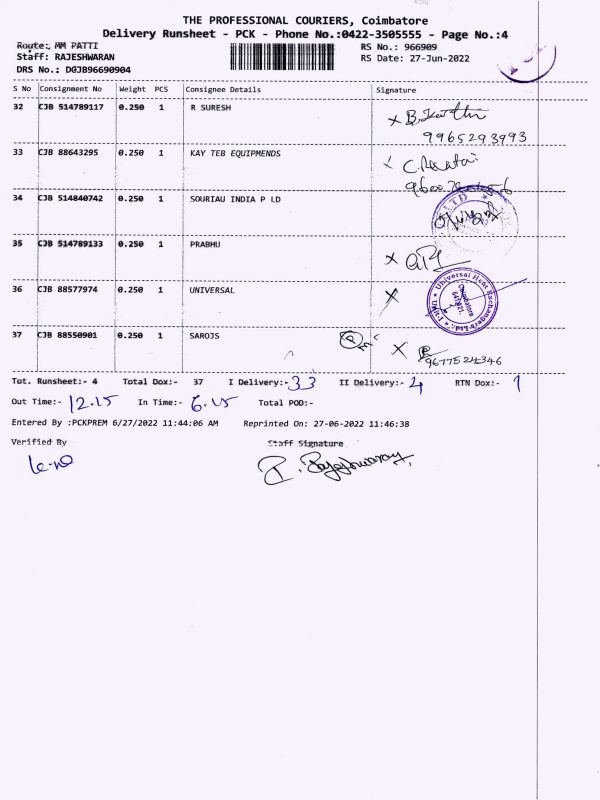 THE PROFESSIONAL COURIERS, Coimbatore
Delivery Runsheet - PCK - Phone No.:0422-3505555 - Page No.:4
Route:, MM PATTI
Staff: RAJESHWARAN
DRS No.: DGJB96690904
RS No.: 966909
RS Date: 27-Jun-2022
S No Consignment No Weight PCS Consignee Details Signature
32 CJB 514789117 0.250 1 R SURESH
9965293993
33 CJB 88643295 0.250 1 KAY TEB EQUIPMENDS
34 CJB 514840742 0.250 1 SOURIAU INDIA P LD
35 CJB 514789133 0.250 1 PRABHU
36 CJB 88577974 0.250 1 UNIVERSAL
Universal Heat Exchangers Ltd., Unit-I
Coimbatore
37 CJB 88550901 0.250 1 SAROJS
9677524346
Tot. Runsheet:- 4 Total Dox:- 37 I Delivery:- 33 II Delivery:- 4 RTN Dox:- 1
Out Time:- 12.15 In Time:- 6.15 Total POD:-
Entered By :PCKPREM 6/27/2022 11:44:06 AM Reprinted On: 27-06-2022 11:46:38
Verified By Staff Signature
P. Rajeshwaran